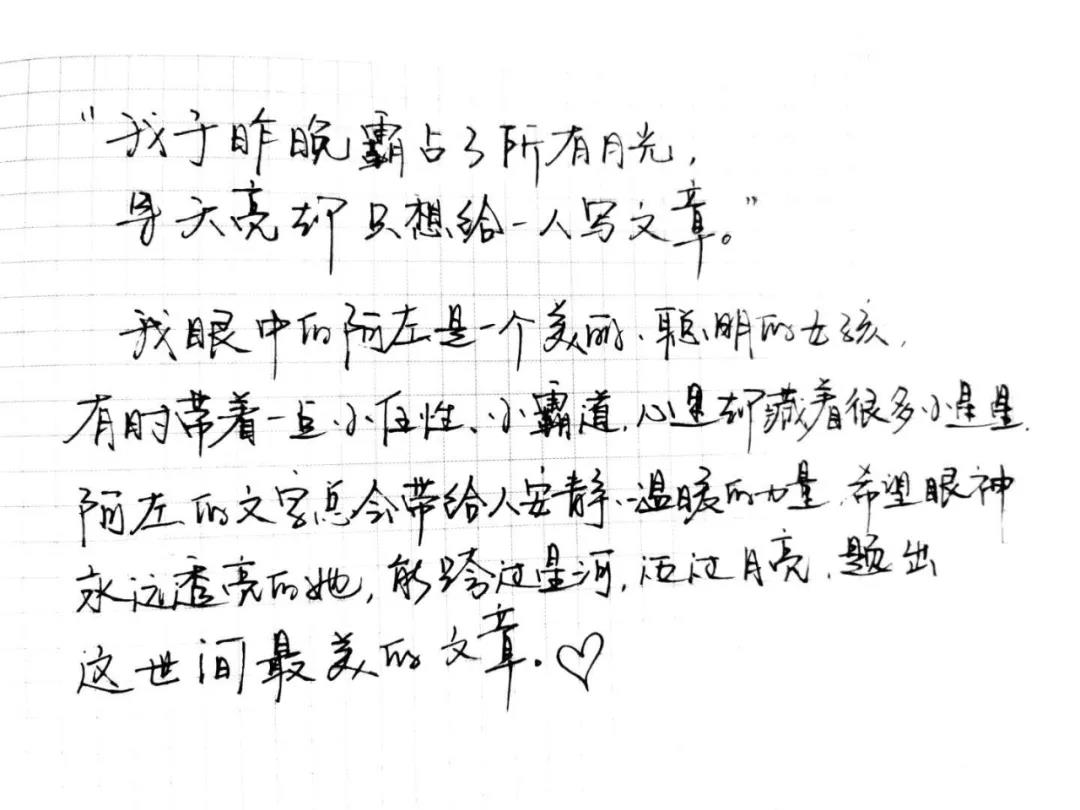 “我于昨晚霸占了所有月光，
导天亮却只想给一人写文章。”
我眼中的阿左是一个美丽、聪明的女孩，
有时带着一点小任性、小霸道，心里却藏着很多小星星，
阿左的文字总会带给人安静、温暖的力量，希望眼神
永远透亮的她，能跨过星河，迈过月亮，题出
这世间最美的文章。♡